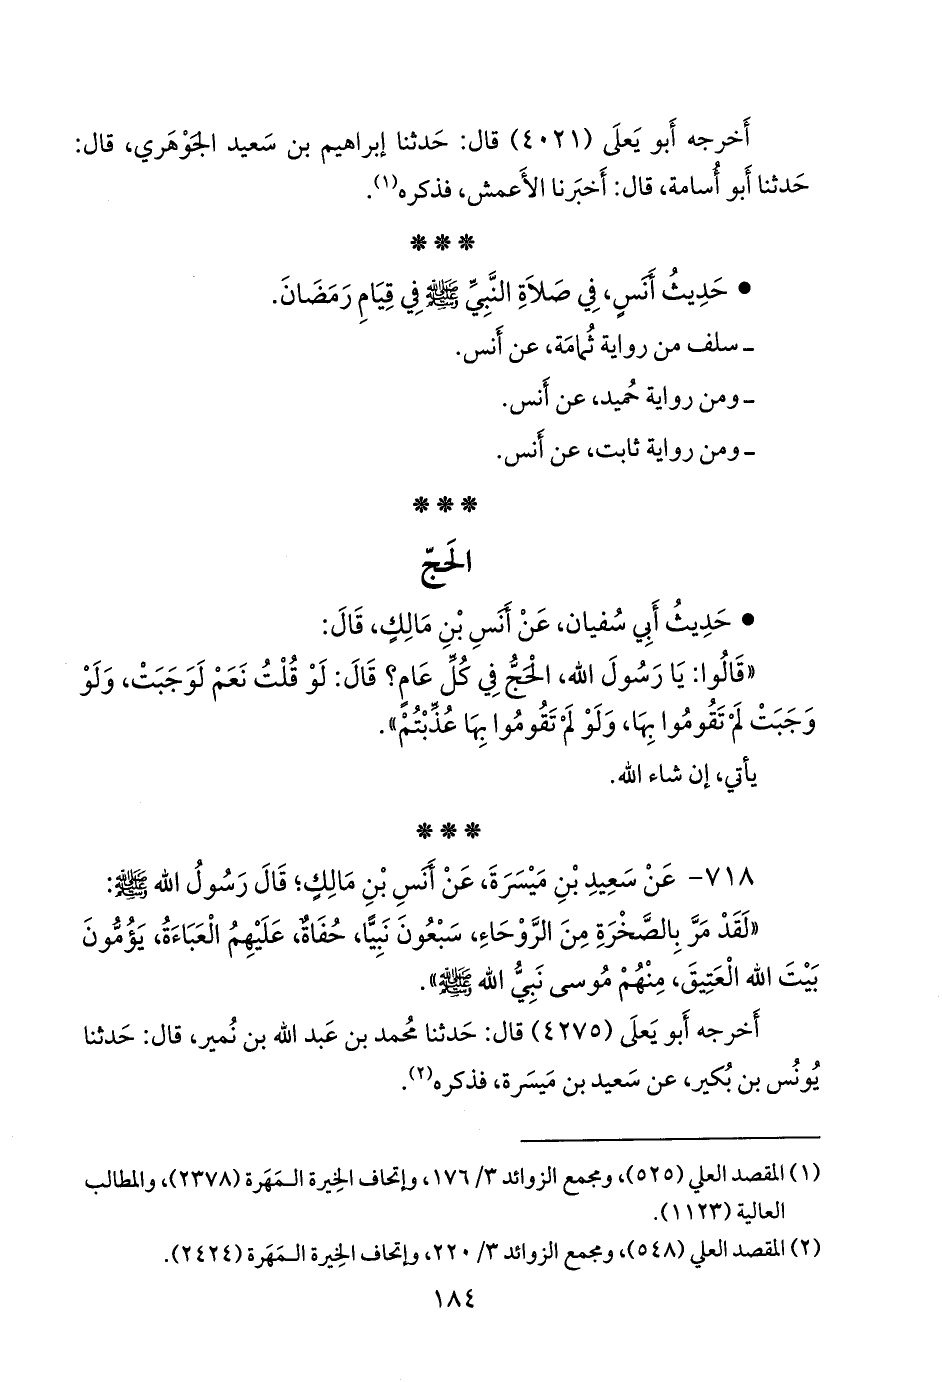 أَخرجه أَبو يَعلَى (٤٠٢١) قال: حَدثنا إبراهيم بن سَعيد الجَوْهَري، قال:
حَدثنا أَبو أُسامة، قال: أَخبَرنا الأَعمش، فذكره(١).
***
• حَدِيثُ أَنَسٍ، فِي صَلاَةِ النَّبِيِّ ﷺ فِي قِيَامِ رَمَضَانَ.
ـ سلف من رواية ثُمامَة، عن أَنس.
ـ ومن رواية حُميد، عن أَنس.
ـ ومن رواية ثابت، عن أَنس.
***
الحَجّ
• حَدِيثُ أَبِي سُفيان، عَنْ أَنَسِ بْنِ مَالِكٍ، قَالَ:
«قَالُوا: يَا رَسُولَ الله، الْحَجُّ فِي كُلِّ عَامٍ؟ قَالَ: لَوْ قُلْتُ نَعَمْ لَوَجَبَتْ، وَلَوْ
وَجَبَتْ لَمْ تَقُومُوا بِهَا، وَلَوْ لَمْ تَقُومُوا بِهَا عُذِّبْتُمْ».
يأتي، إن شاء الله.
***
٧١٨- عَنْ سَعِيدِ بْنِ مَيْسَرَةَ، عَنْ أَنَسِ بْنِ مَالِكٍ؛ قَالَ رَسُولُ الله ﷺ:
«لَقَدْ مَرَّ بِالصَّخْرَةِ مِنَ الرَّوْحَاءِ، سَبْعُونَ نَبِيًّا، حُفَاةٌ، عَلَيْهِمُ الْعَبَاءَةُ، يَؤُمُّونَ
بَيْتَ الله الْعَتِيقَ، مِنْهُمْ مُوسى نَبِيُّ الله ﷺ».
أَخرجه أَبو يَعلَى (٤٢٧٥) قال: حَدثنا مُحمد بن عَبد الله بن نُمير، قال: حَدثنا
يُونُس بن بُكير، عن سَعيد بن مَيسَرة، فذكره(٢).
(١) المقصد العلي (٥٢٥)، ومجمع الزوائد ٣/ ١٧٦، وإتحاف الخِيرة الـمَهَرة (٢٣٧٨)، والمطالب
العالية (١١٢٣).
(٢) المقصد العلي (٥٤٨)، ومجمع الزوائد ٣/ ٢٢٠، وإتحاف الخِيرة الـمَهَرة (٢٤٢٤).
١٨٤